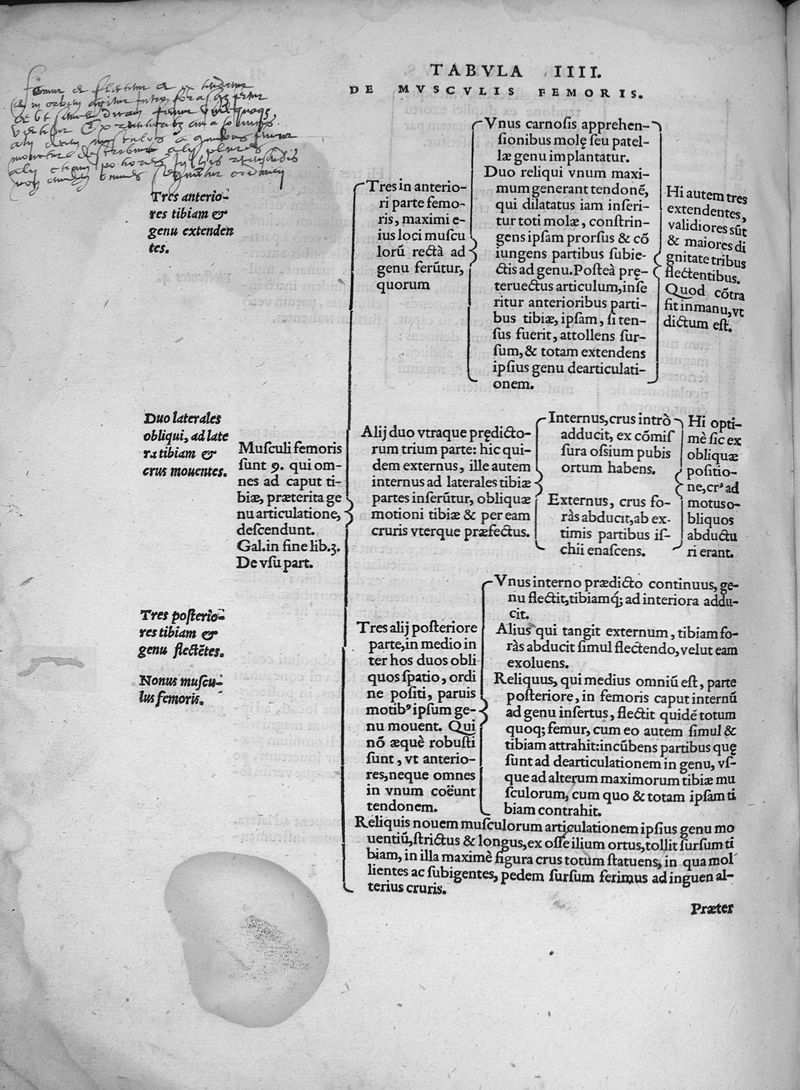 TABVLA IIII.
DE MVSCVLIS FEMORIS.
Femur & flectitur & extenditur
Tres anterio-
res tibiam &
genu extenden
tes.
Duo laterales
obliqui, ad late
ra tibiam &
crus mouentes.
Tres posterio-
res tibiam &
genu flectētes.
Nonus muscu-
lus femoris.
Musculi femoris
sunt 9. qui om-
nes ad caput ti-
biæ, præterita ge
nu articulatione,
descendunt.
Gal. in fine lib. 3.
De vsu part.
Tres in anterio-
ri parte femo-
ris, maximi e-
ius loci muscu
lorū rectà ad
genu ferūtur,
quorum
Vnus carnosis apprehen-
sionibus molę seu patel-
læ genu implantatur.
Duo reliqui vnum maxi-
mum generant tendonē,
qui dilatatus iam inseri-
tur toti molæ, constrin-
gens ipsam prorsus & cō
iungens partibus subie-
ctis ad genu. Posteà prę-
teruectus articulum, inse
ritur anterioribus parti-
bus tibiæ, ipsam, si ten-
sus fuerit, attollens sur-
sum, & totam extendens
ipsius genu dearticulati-
onem.
Hi autem tres
extendentes,
validiores sūt
& maiores di
gnitate tribus
flectentibus.
Quod cōtra
fit in manu, vt
dictum est.
Alij duo vtraque prędicto-
rum trium parte: hic qui-
dem externus, ille autem
internus ad laterales tibiæ
partes inserūtur, obliquæ
motioni tibiæ & per eam
cruris vterque præfectus.
Internus, crus intrò
adducit, ex cōmis
sura ossium pubis
ortum habens.
Externus, crus fo-
ràs abducit, ab ex-
timis partibus is-
chii enascens.
Hi opti-
mè sic ex
obliquæ
positio-
ne, crꝰ ad
motus o-
bliquos
abductu
ri erant.
Tres alij posteriore
parte, in medio in
ter hos duos obli
quos spatio, ordi
ne positi, paruis
motibꝰ ipsum ge-
nu mouent. Qui
nō æquè robusti
sunt, vt anterio-
res, neque omnes
in vnum coëunt
tendonem.
Vnus interno prædicto continuus, ge-
nu flectit, tibiamq; ad interiora addu-
cit.
Alius qui tangit externum, tibiam fo-
ràs abducit simul flectendo, velut eam
exoluens.
Reliquus, qui medius omniū est, parte
posteriore, in femoris caput internū
ad genu insertus, flectit quidē totum
quoq; femur, cum eo autem simul &
tibiam attrahit: incūbens partibus quę
sunt ad dearticulationem in genu, vs-
que ad alterum maximorum tibiæ mu
sculorum, cum quo & totam ipsam ti
biam contrahit.
Reliquis nouem musculorum articulationem ipsius genu mo
uentiū, strictus & longus, ex osse ilium ortus, tollit sursum ti
biam, in illa maximè figura crus totum statuens, in qua mol
lientes ac subigentes, pedem sursum ferimus ad inguen al-
terius cruris.
Præter